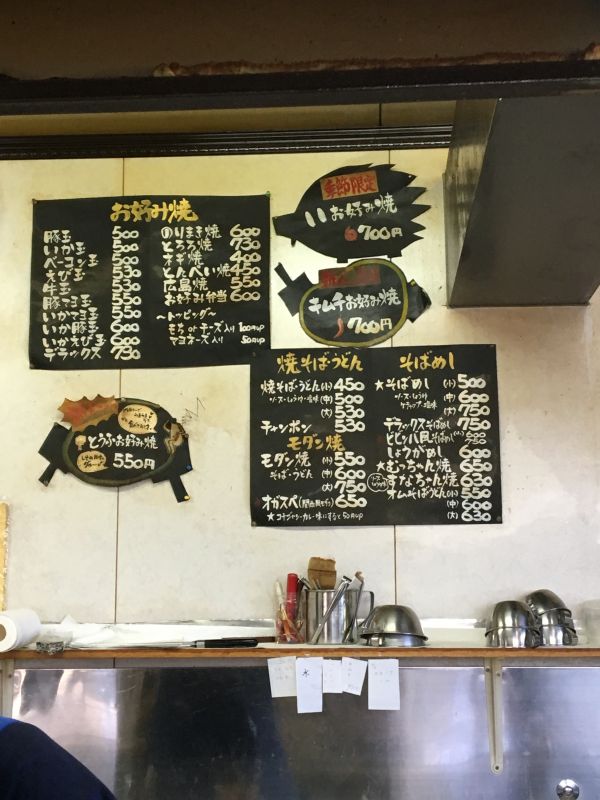 お好み焼
豚玉 500
いか玉 500
ベーコン玉 500
えび玉 530
牛玉 530
豚マヨ玉 550
いかマヨ玉 550
いか豚玉 600
いかえび玉 600
デラックス 730
のりまき焼 600
とろろ焼 730
ネギ焼 400
とんぺい焼 450
広島焼 650
お好み弁当 600
~トッピング~
もち or チーズ入り 100円UP
マヨネーズ入り 50円UP
季節限定
お好み焼
700円
キムチお好み焼
700円
とうふお好み焼
550円
焼そば・うどん
焼そば・うどん(小) 450
ソース・しょうゆ・塩味 (中) 500
(大) 530
チャンポン 530
モダン焼
モダン焼 (小) 550
そば・うどん (中) 600
(大) 750
オガスペ 650
そばめし
★そばめし (小) 500
ソース・しょうゆ (中) 600
ケチャップ・塩味 (大) 750
デラックスそばめし 750
しょうがめし 650
★むっちゃん焼 650
すなちゃん焼 630
オムそばうどん(小) 550
(中) 600
(大) 630
水